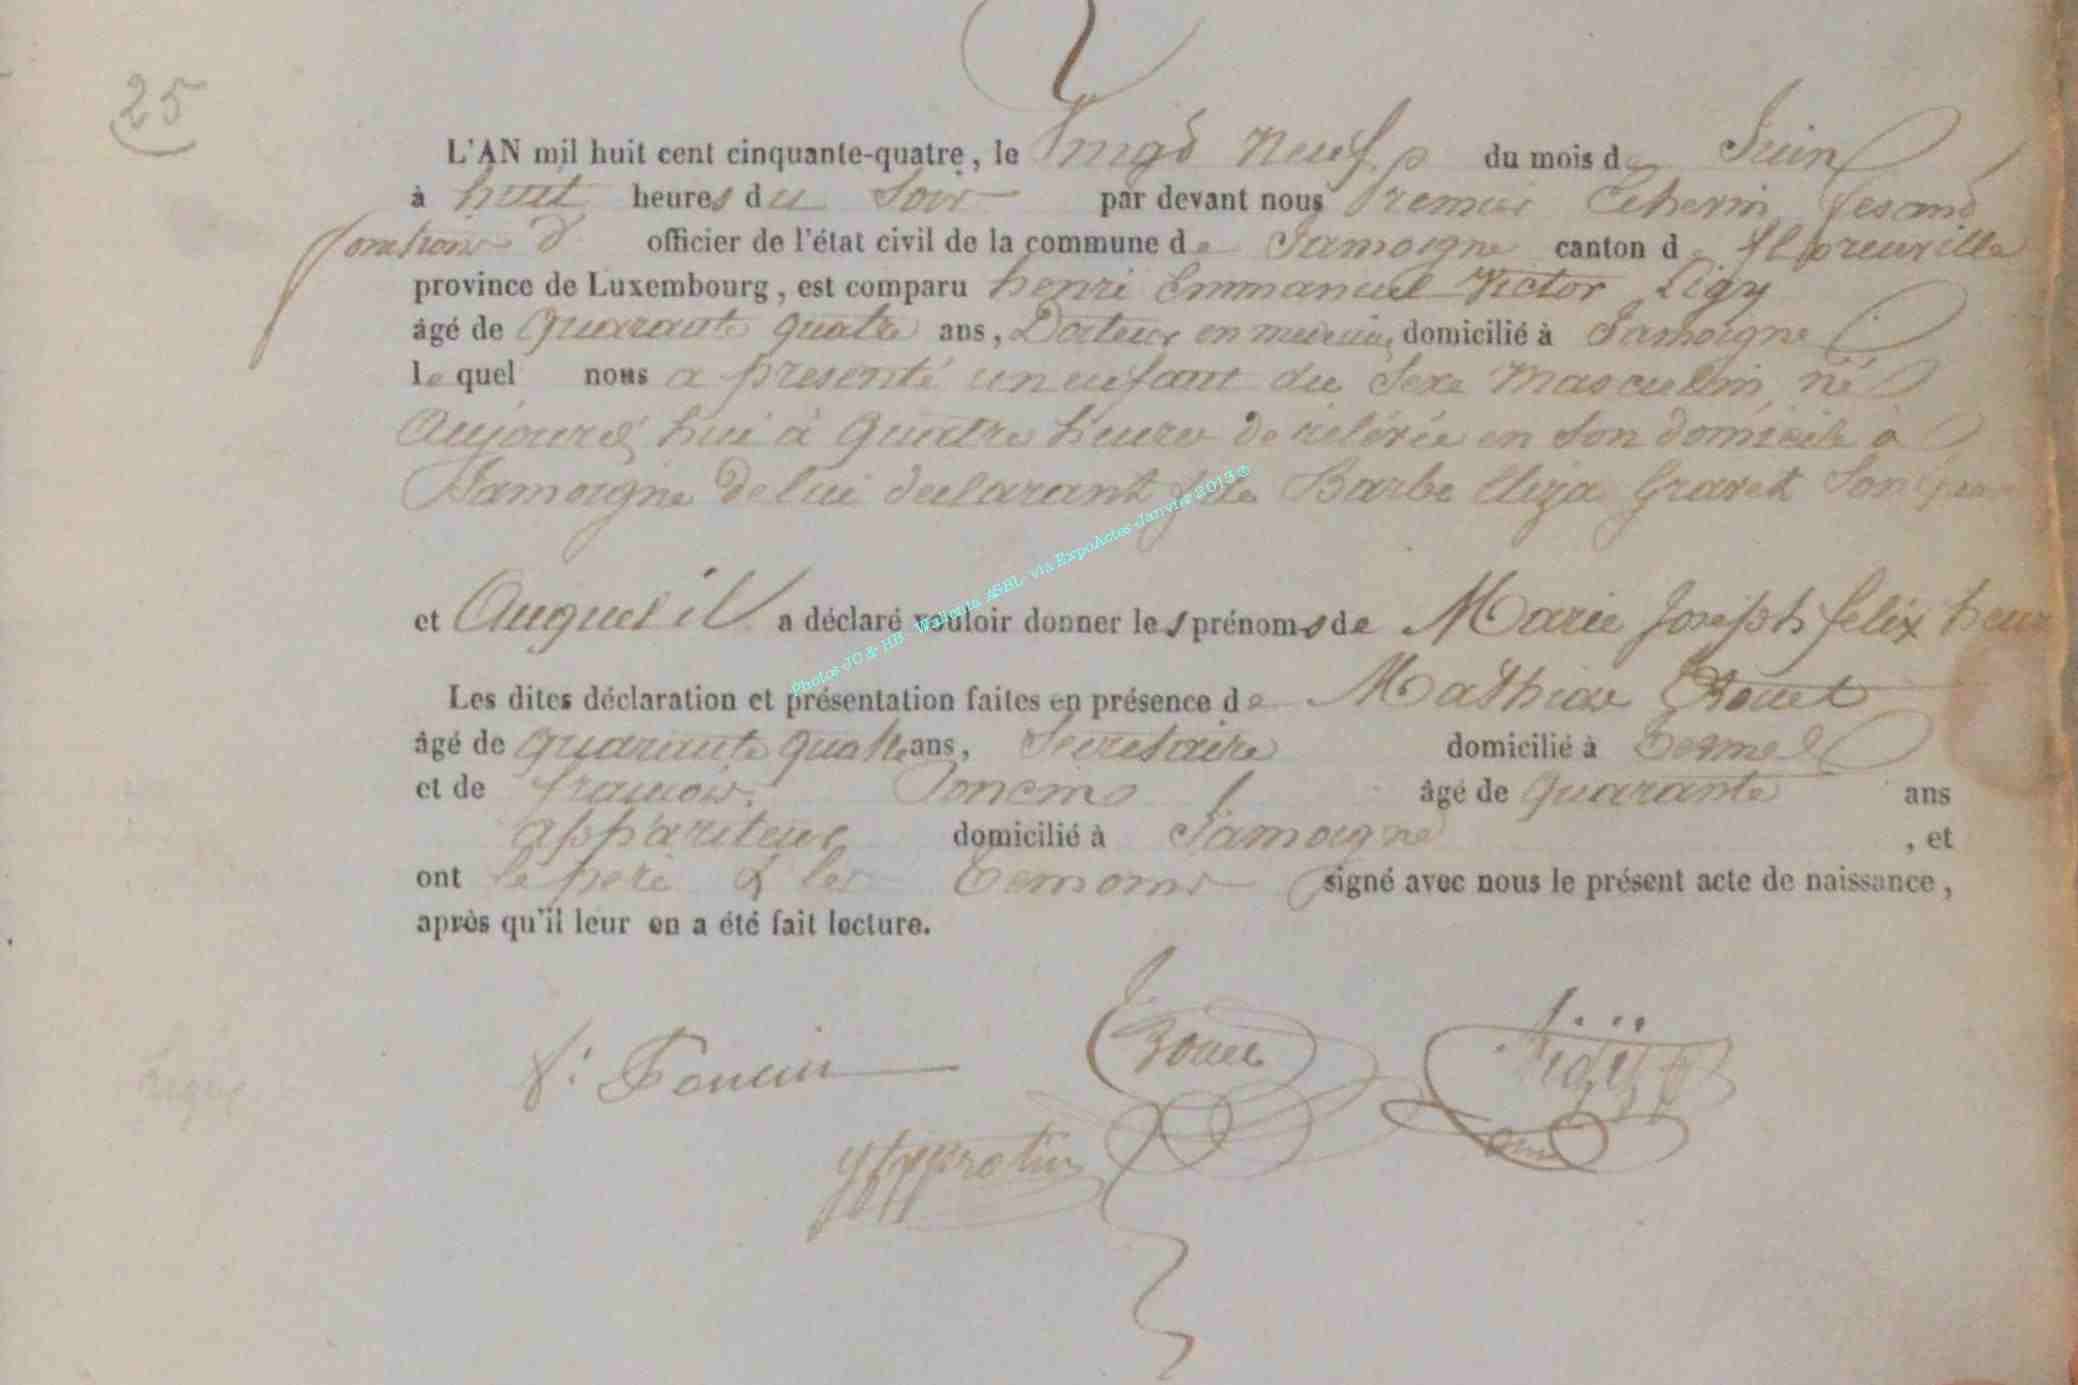 25
L'AN mil huit cent cinquante-quatre, le vingt neuf du mois de Juin
à huit heures du Soir par devant nous Premier Echevin fesant
fonctions d' officier de l'état civil de la commune de Jamoigne canton de
province de Luxembourg, est comparu henri Emmanuel Victor Ligy
âgé de Quarante quatre ans, Docteur en medecine domicilié à Jamoigne
le quel nous a presenté un enfant du Sexe Masculin, né
Aujourd'hui à Quatre heures de rélévée en son domicile à
Jamoigne de lui declarant & de Barbe Eliza Gravet Son
et Auquel il a déclaré vouloir donner les prénoms de Marie Joseph felix
Les dites déclaration et présentation faites en présence de Mathieu
âgé de quarante quatre ans, Secretaire domicilié à Termes
et de francois Poncin âgé de Quarante ans
appariteur domicilié à Jamoigne , et
ont le pere & les Temoins signé avec nous le présent acte de naissance,
après qu'il leur en a été fait lecture.
f. Poncin
Photos JC & HB - Wallonia ASBL- via ExpoActes-Janvier 2013©